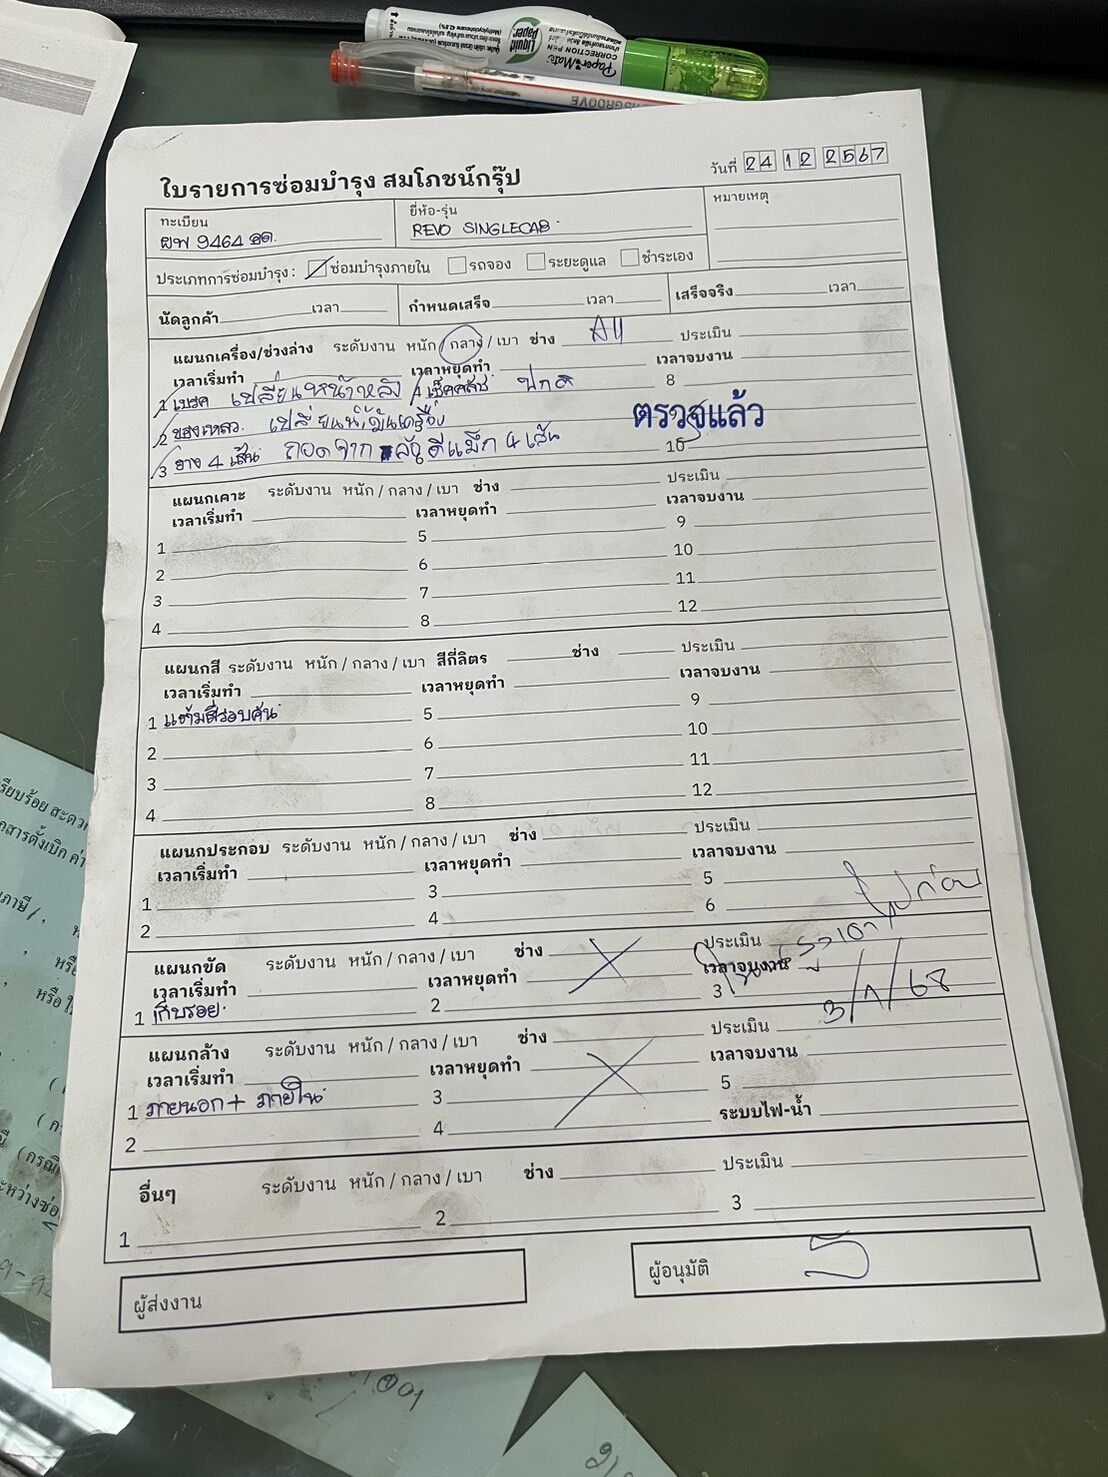 Liquid Paper
Paper Mate
CORRECTION PEN
ใบรายการซ่อมบำรุง สมโภชน์กรุ๊ป
วันที่ 24 12 2567
ทะเบียน
ผพ 9464 อด.
ยี่ห้อ-รุ่น
REVO SINGLECAB
หมายเหตุ
ประเภทการซ่อมบำรุง: ซ่อมบำรุงภายใน รถจอง ระยะดูแล ชำระเอง
นัดลูกค้า เวลา กำหนดเสร็จ เวลา เสร็จจริง เวลา
แผนกเครื่อง/ช่วงล่าง ระดับงาน หนัก / กลาง / เบา ช่าง ประเมิน
เวลาเริ่มทำ เวลาหยุดทำ เวลาจบงาน
1 เบรค เปลี่ยนหน้าหลัง 4 เช็คคลัช ปกติ 8
2 ของเหลว. เปลี่ยนน้ำมันเครื่อง
ตรวจแล้ว
3 ยาง 4 เส้น ถอดจาก ดีแม็ก 4 เส้น 10
แผนกเคาะ ระดับงาน หนัก / กลาง / เบา ช่าง ประเมิน
เวลาเริ่มทำ เวลาหยุดทำ เวลาจบงาน
1 5 9
2 6 10
3 7 11
4 8 12
แผนกสี ระดับงาน หนัก / กลาง / เบา สีกี่ลิตร ช่าง ประเมิน
เวลาเริ่มทำ เวลาหยุดทำ เวลาจบงาน
1 แต้มสีรอบคัน 5 9
2 6 10
3 7 11
4 8 12
แผนกประกอบ ระดับงาน หนัก / กลาง / เบา ช่าง ประเมิน
เวลาเริ่มทำ เวลาหยุดทำ เวลาจบงาน
1 3 5
2 4 6
แผนกขัด ระดับงาน หนัก / กลาง / เบา ช่าง ประเมิน
เวลาเริ่มทำ เวลาหยุดทำ เวลาจบงาน
1 เก็บรอย 2 3
3/1/68
แผนกล้าง ระดับงาน หนัก / กลาง / เบา ช่าง ประเมิน
เวลาเริ่มทำ เวลาหยุดทำ เวลาจบงาน
1 ภายนอก + ภายใน 3 5
2 4 ระบบไฟ-น้ำ
อื่นๆ ระดับงาน หนัก / กลาง / เบา ช่าง ประเมิน
1 2 3
ผู้ส่งงาน
ผู้อนุมัติ